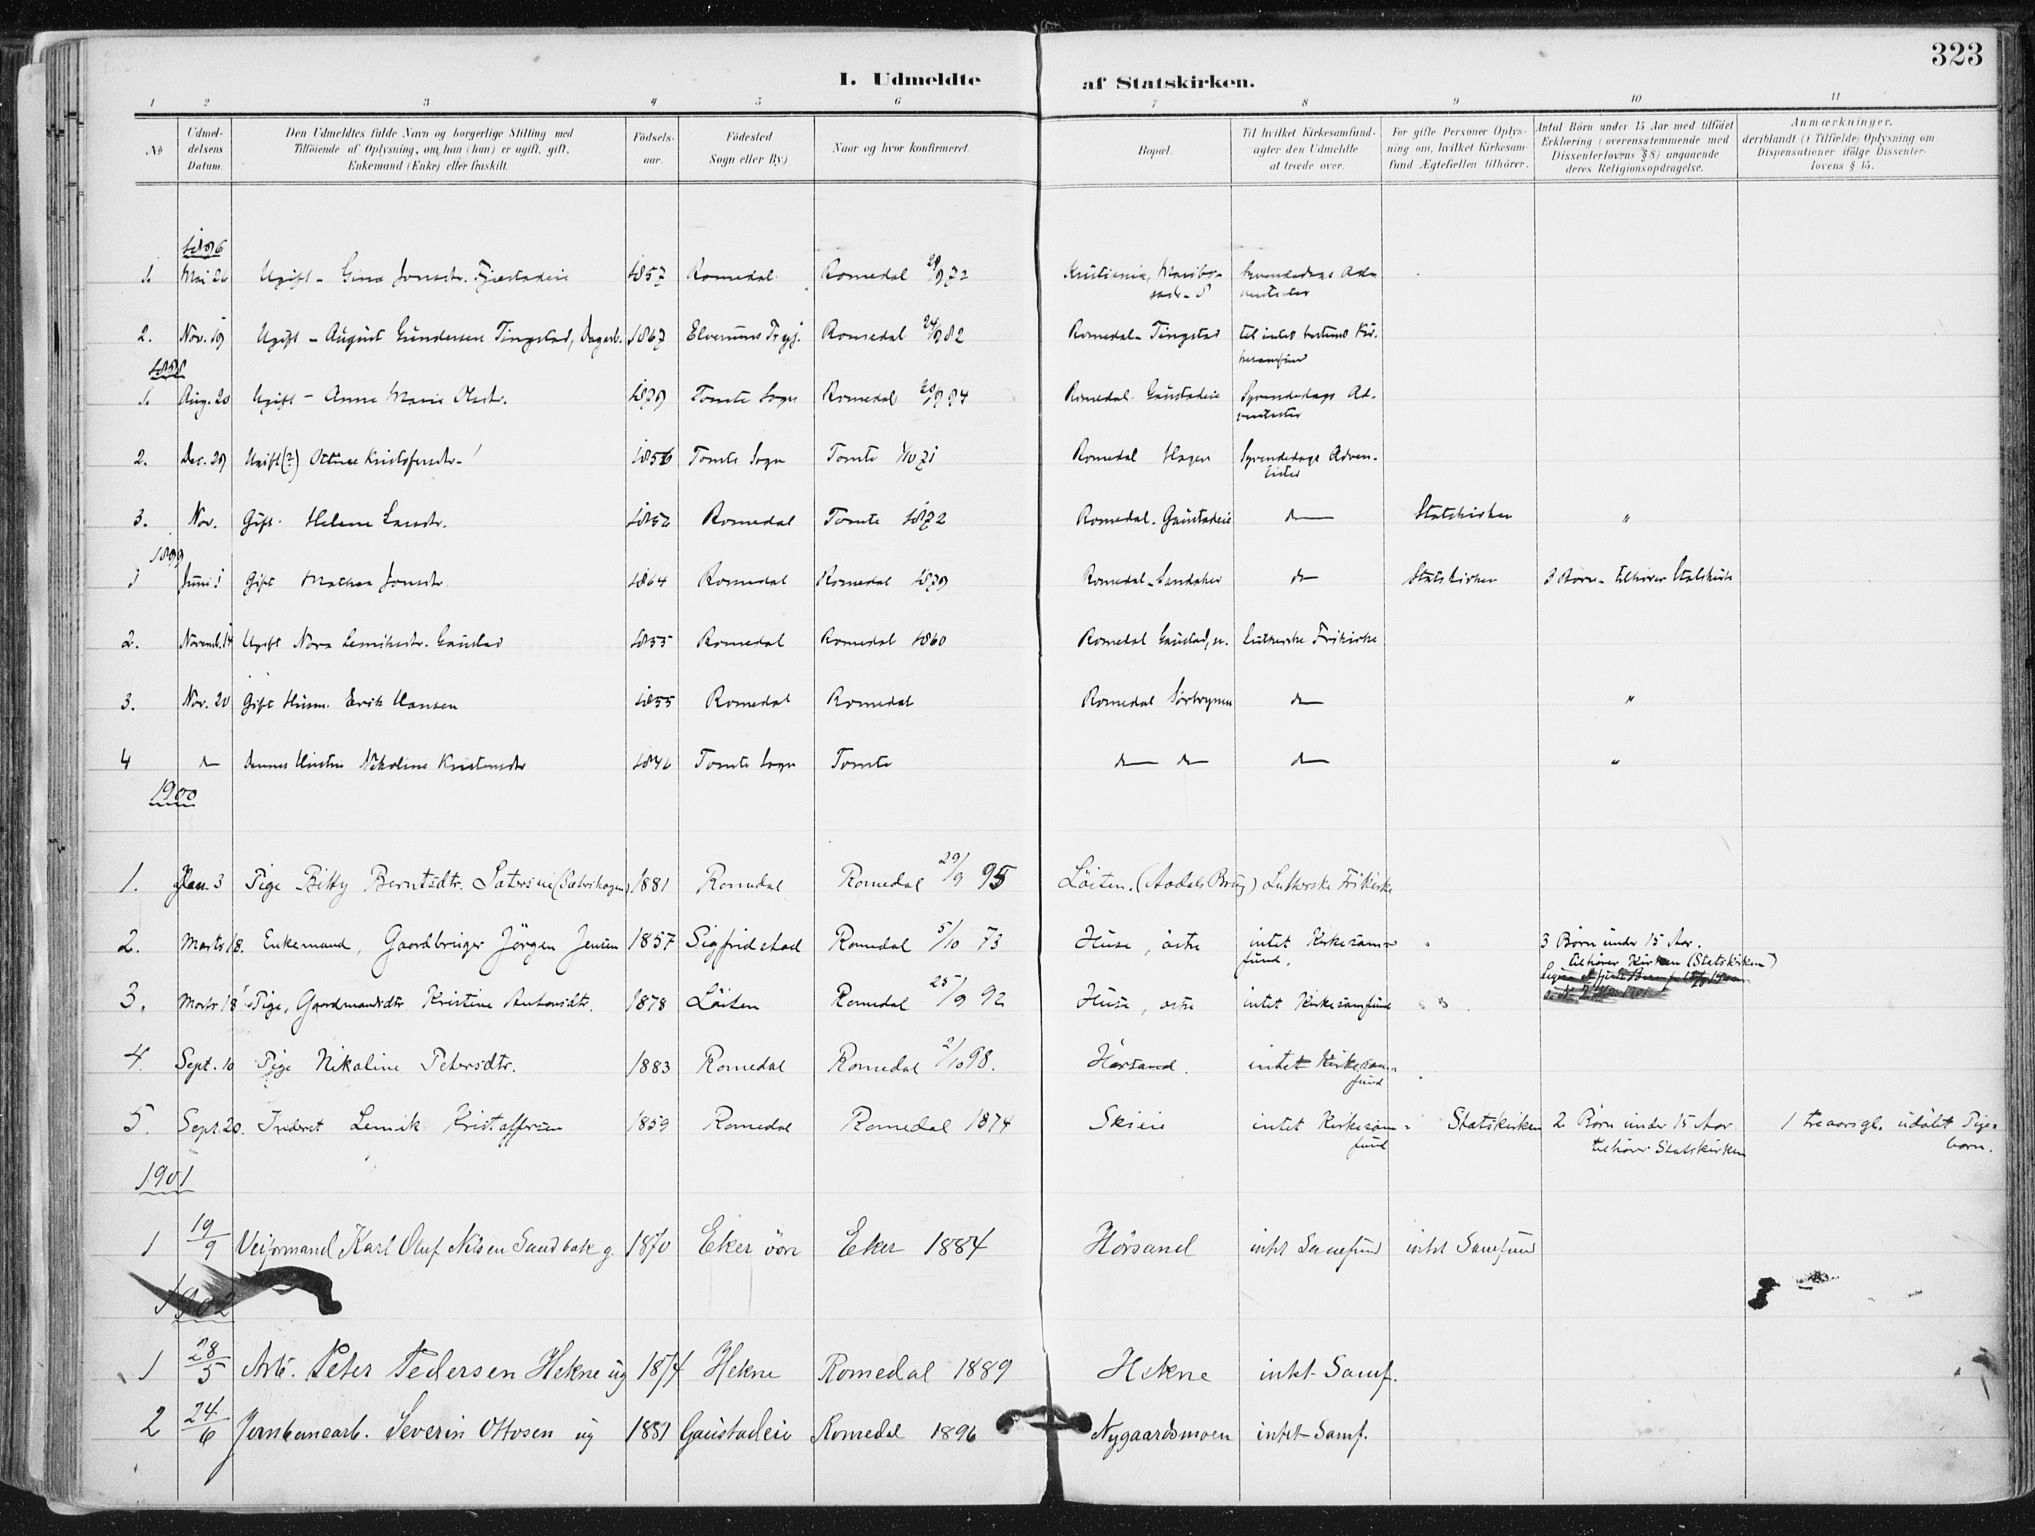 323
I. Udmeldte af Statskirken.
1 2 3 4 5 6 7 8 9 10 11
No
Udmel-
delsens
Datum.
Den Udmeldtes fulde Navn og borgerlige Stilling med
Tilføiende af Oplysning, om han (hun) er ugift, gift,
Enkemand (Enke) eller fraskilt.
Fødsels-
aar.
Fødested
(Sogn eller By)
Naar og hvor konfirmeret.
Bopæl.
Til hvilket Kirkesamfund-
agter den Udmeldte
at træde over.
For gifte Personer Oplys-
ning om, hvilket Kirkesam-
fund Ægtefællen tilhører.
Antal Børn under 15 Aar med tilføiet
Erklæring (overensstemmende med
Dissenterlovens § 8) angaaende
deres Religionsopdragelse.
Anmærkninger,
deriblandt (i Tilfælde) Oplysning om
Dispensationer ifølge Dissenter-
lovens § 15.
1896
1. Mai 26 Ugift - Gina Jonsdtr. 1857 Romedal Romedal 72 Kristiania, Syvendedags Ad-
ventister
2. Nov. 19 Ugift - August Gundersen Tingstad, Dagarb. 1867 Elverums Romedal 82 Romedal - Tingstad til intet bestemt Kir-
kesamfund
1898
1. Aug. 20 Ugift - Anne Marie Olsdtr. 1879 Tomte Sogn Romedal 94 Romedal Gaustadeie Syvendedags Ad-
ventister
2. Dec. 29 Ugift (?) Kristofersdtr. 1856 Tomte Sogn Tomte 1/10 71 Romedal Hagen Syvendedags Adven-
tister
3. Nov. Gift. Helene Larsdtr. 1856 Romedal Tomte 1872 Romedal. Gaustadeie d— Statskirken "
1899
1 Juni 1 Gift Mathea Jonsdtr 1864 Romedal Romedal 1879 Romedal - Sandaker d— Statskirken 3 Børn - tilhører Statskirk
2. Novemb. 14 Ugift Nora Lemiksdtr. Gaustad 1855 Romedal Romedal 1860 Romedal Gaustad, n. Lutherske Frikirke
3. Nov. 20 Gift Husm. Erik Hansen 1855 Romedal Romedal Romedal d— "
4 d— dennes Hustru Nikoline Kristensdtr 1846 Tomte Sogn Tomte d— d— d— "
1900
1. Jan. 3 Pige Betty Berntsdtr. (Sæterhagen) 1881 Romedal Romedal 29/9 95 Løiten. (Aadals Brug) Lutherske Frikirke
2. Marts 18. Enkemand, Gaardbruger Jørgen Jensen 1857 Sigfridstad Romedal 5/10 73 Huse, østre intet Kirkesam-
fund. 3 Børn under 15 Aar.
tilhører Kirken (Statskirken)
3. Marts 18 Pige, Gaardmandsdtr. Kristine Antonsdtr. 1878 Løiten Romedal 25/9 92 Huse, østre intet Kirkesamfund
4. Sept. 10 Pige Nikoline Petersdtr. 1883 Romedal Romedal 2/10 98. Hørsand. intet Kirkesam-
fund
5. Sept. 20. Inderst Lemik Kristoffersen 1859 Romedal Romedal 1874 Skieie intet Kirkesam-
fund Statskirken 2 Børn under 15 Aar
tilhører Statskirken 1 treaarsgl. udøbt Pige-
barn.
1901
1 19/9 Veiformand Karl Oluf Nilsen Sandbak g. 1870 Eker Eker 1884 Hørsand intet Samfund intet Samfund
1902
1 28/5 Arb. Peter Pedersen Hekne ug 1874 Hekne Romedal 1889 Hekne intet Samf.
2 24/6 Jernbanearb. Severin Ottosen ug 1881 Gaustadeie Romedal 1896 Nygaardsmoen intet Samf.